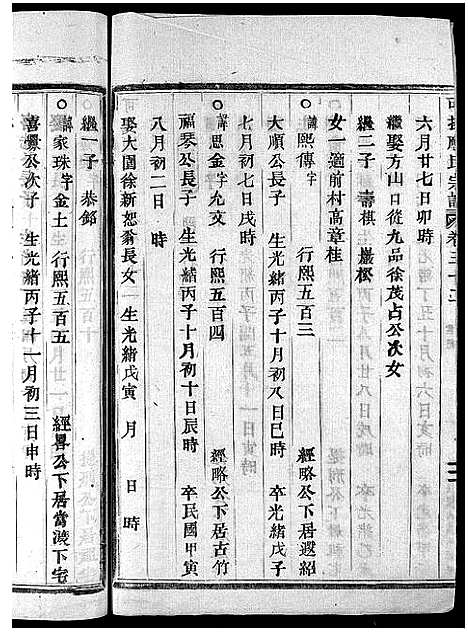 六月廿七日卯時
繼娶方山口從九品徐茂占公次女
繼二子 壽棋 巖松
女一適前村高章桂
諱熙傳字 行熙五百三 經略公下居遐紹
大順公長子 生光緒丙子十月初八日巳時 卒光緒戊子
七月初七日戌時
諱思金字允文 行熙五百四 經略公下居古竹
福琴公長子 生光緒丙子十月初十日辰時 卒民國甲寅
八月初二日 時
可娶大園徐新恕翁長女 生光緒戊寅 月 日 時
繼一子 恭鄒
諱家珠字金土 行熙五百五 經畧公下居當 下宅
喜 公次子 生光緒丙子十一月初三日申時